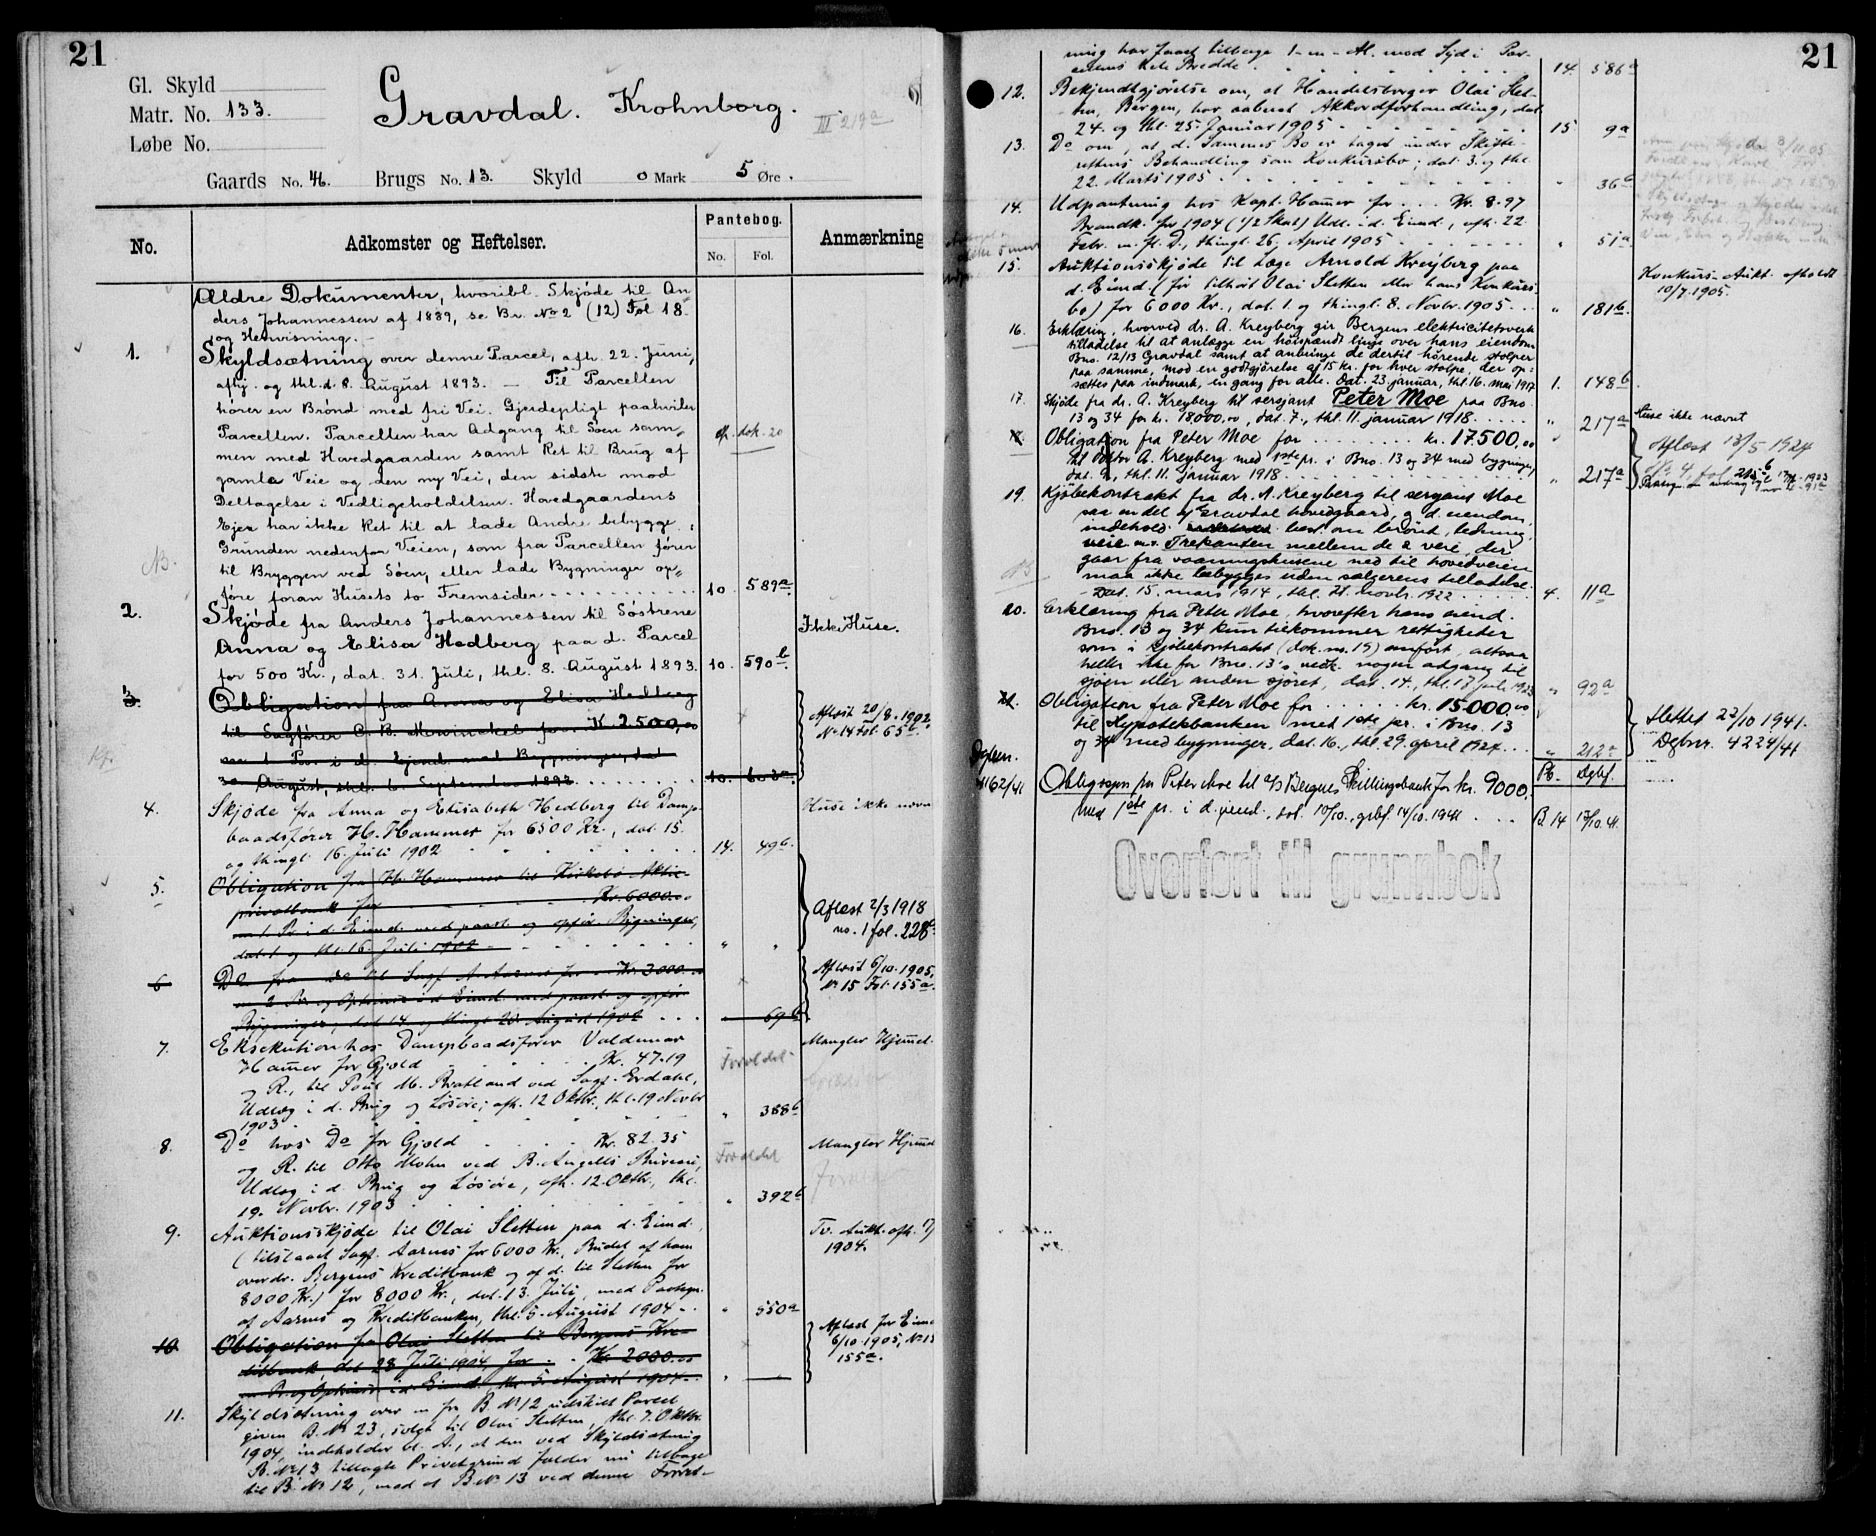 21
Gl. Skyld
Matr. No. 133.
Løbe No.
Gravdal. Krohnborg.
III 219a
Gaards No. 46. Brugs No. 13. Skyld 0 Mark 5 Øre.
No.
Adkomster og Heftelser.
Pantebog.
No. Fol.
Anmærkning
Ældre Dokumenter, hvoribl. Skjøde til An-
ders Johannessen af 1889, se Br. No 2 (12) Fol 18.
og Henvisning.
1. Skyldsætning over denne Parcel, afh. 22. Juni,
afhj. og thl. d. 8. August 1893. — Til Parcellen
hører en Brønd med fri Vei. Gjerdepligt paahviler
Parcellen. Parcellen har Adgang til Søen sam-
men med Hovedgaarden samt Ret til Brug af
gamle Veie og den ny Vei, den sidste mod
Deltagelse i Vedligeholdelsen. Hovedgaardens
Ejer har ikke Ret til at lade Andre bebygge
Grunden nedenfor Veien, som fra Parcellen fører
til Bryggen ved Søen, eller lade Bygninger op-
føre foran Husets to Fremsider 10. 589a
cfr. dok. 20
NB.
2. Skjøde fra Anders Johannessen til Søstrene
Anna og Elisa Hedberg paa d. Parcel
for 500 Kr., dat. 31. Juli, thl. 8. August 1893. 10. 590b.
Ikke Huse.
3. Obligation fra Anna og Elisa Hedberg
til Sagfører C. B. Mowinckel for Kr. 2500,00
m 1 Pr. i d. Ejend. med Bygninger, dat
30 August, thl. 6 September 1893 10. 603a
Aflæst 20/8. 1902,
No 14 Fol. 65a.
4. Skjøde fra Anna og Elisabeth Hedberg til Damp-
baadsfører H. Hammer for 6500 Kr., dat. 15.
og thingl. 16. Juli 1902 14. 49b.
Huse ikke nævn
5. Obligation fra H. Hammer til Kirkebø Aktie-
privatbank for Kr. 6000.00
m 1 Pr. i d. Eiend. med paast. og opfør. Bygninger,
dat. 1 og thl. 16. Juli 1902 " "
Aflæst 2/3 1918
no. 1 fol. 228b
6 Do fra do til Sagf. A. Aarnes for Kr. 3000.00
m 2 Pr. og Opt. i d. Eiend. med paast. og opfør.
Bygninger, dat. 14 og thingl. 20. August 1902 69b
Aflæst 6/10. 1905,
No 15 Fol. 155a.
7. Eksekution hos Dampbaadsfører Valdemar
Hamer for Gjæld Kr. 47.19
og R., til Poul M. Bratland ved Sagf. Erdahl,
Udlæg i d. Brug og Løsøre; afh. 12 Oktbr., thl. 19 Novbr
1903 " 388b
Forældet
Mangler Hjemmel.
8. Do hos Do for Gjæld Kr. 82.35
og R. til Otto Mohn ved B. Angells Bureau,
Udlæg i d. Brug og Løsøre, afh. 12. Oktbr., thl.
19. Novbr. 1903 " 392b
Forældet
Mangler Hjemmel
9. Auktionsskjøde til Olai Sletten paa d. Eiend.
(tilslaaet Sagf. Aarnes for 6000 Kr., Budet af ham
overdr. Bergens Kreditbank og af d. til Sletten for
8000 Kr.) for 8000 Kr., dat. 13. Juli, med Paategn.
af Aarnes og Kreditbanken, thl. 5. August 1904 " 550a
Tv. Aukt. afh.
1904.
10. Obligation fra Olai Sletten til Bergens Kre-
ditbank dat 23 Juli 1904 for Kr. 2000.00
m Pr. og Opt. i d. Eiend., thl. 5. August 1904 " "
Aflæst for Eiend
6/10. 1905, No 15
155a.
11. Skyldsætning over en fra B. No 12 udskilt Parcel,
given B. No 23, solgt til Olai Sletten, thl. 7. Oktbr.
1904, indeholder bl. A., at den ved Skyldsætning
B. No 13 tillagte Privetgrund falder nu tilbage
til B. No 12, mod at B. No 13 ved denne Forret-
21
ning har faaet tilbage 1 - en - Al. mod Syd i Par-
cellens hele Bredde. 14. 586a
12. Bekjendtgjørelse om, at Handelsborger Olai Slet-
ten, Bergen, har aabnet Akkordforhandling, dat.
24. og thl. 25. Januar 1905 15 9a
13. Do om, at d. Sammes Bo er taget under Skifte-
rettens Behandling som Konkursbo; dat. 3. og thl.
22. Marts 1905 " 36b
14. Udpantning hos Kapt. Hamer for Kr. 8.97
Brandk. for 1904 (1/2 Skat) Udl. i d. Eiend., afh. 22
Febr. m. fl. D., thingl. 26. April 1905 " 51a
15. Auktionsskjøde til Læge Arnold Kreyberg paa
d. Eiend. (før tilhørt Olai Sletten eller hans Konkurs-
bo) for 6000 Kr., dat. 1. og thingl. 8. Novbr. 1905 " 181b.
Konkurs-Aukt. afholdt
10/7. 1905.
16. Erklæring, hvorved dr. A. Kreyberg gir Bergens elektricitetsverk
tilladelse til at anlægge en høispændt linje over hans eiendom
Bno. 12/13 Gravdal samt at anbringe de dertil hørende stolper
paa samme, mod en godtgjørelse af 15 kr. for hver stolpe, der op-
sættes paa indmark, en gang for alle. Dat. 23. januar, thl. 16. mai 1917 1. 148b.
17. Skjøde fra dr. A. Kreyberg til sersjant Peter Moe paa Bno.
13 og 34 for kr. 18000,00, dat. 7., thl. 11. januar 1918 " 217a
Huse ikke nævnt
18. Obligation fra Peter Moe for kr. 17500,00
til doktor A. Kreyberg med 1ste pr. i Bno. 13 og 34 med bygninger,
dat. 9., thl. 11. januar 1918 " 217a
Aflæst 13/5 1924
No 4, fol 215b
19. Kjøbekontrakt fra dr. A. Kreyberg til sersjant Moe
paa en del af Gravdal hovedgaard, og d. eiendom,
indehold. best. om brønd, ledning,
veie m.v. Trekanten mellem de 2 veie, der
gaar fra vaaningshusene ned til hovedveien
maa ikke bebygges uden sælgerens tilladelse.
Dat. 15. mars 1914, thl. 21. novbr. 1922 4. 11a
20. Erklæring fra Peter Moe, hvorefter hans eiend.
Bno. 13 og 34 kun tilkommer rettigheter
som i kjøbekontrakt (dok. no. 19) anført, altsaa
heller ikke for Bno. 13's vedk. nogen adgang til
sjøen eller anden sjøret, dat. 14., thl. 17 juli 1923 " 92a
21. Obligation fra Peter Moe for kr. 15000,00
til Hypotekbanken med 1ste pr. i Bno. 13
og 34 med bygninger, dat. 16., thl. 29. april 1924 " 212a
Slettet 23/10 1941.
Dgbnr. 4224/41
Pb. Dgbf.
Dgbnr.
4162/41 Obligasjon fra Peter Moe til A/S Bergens Skillingsbank for kr. 9000.-
med 1ste pr. i d. eiend., dat. 10/10., grbf. 14/10. 1941 B 14 17/10. 41.
Overført til grunnbok